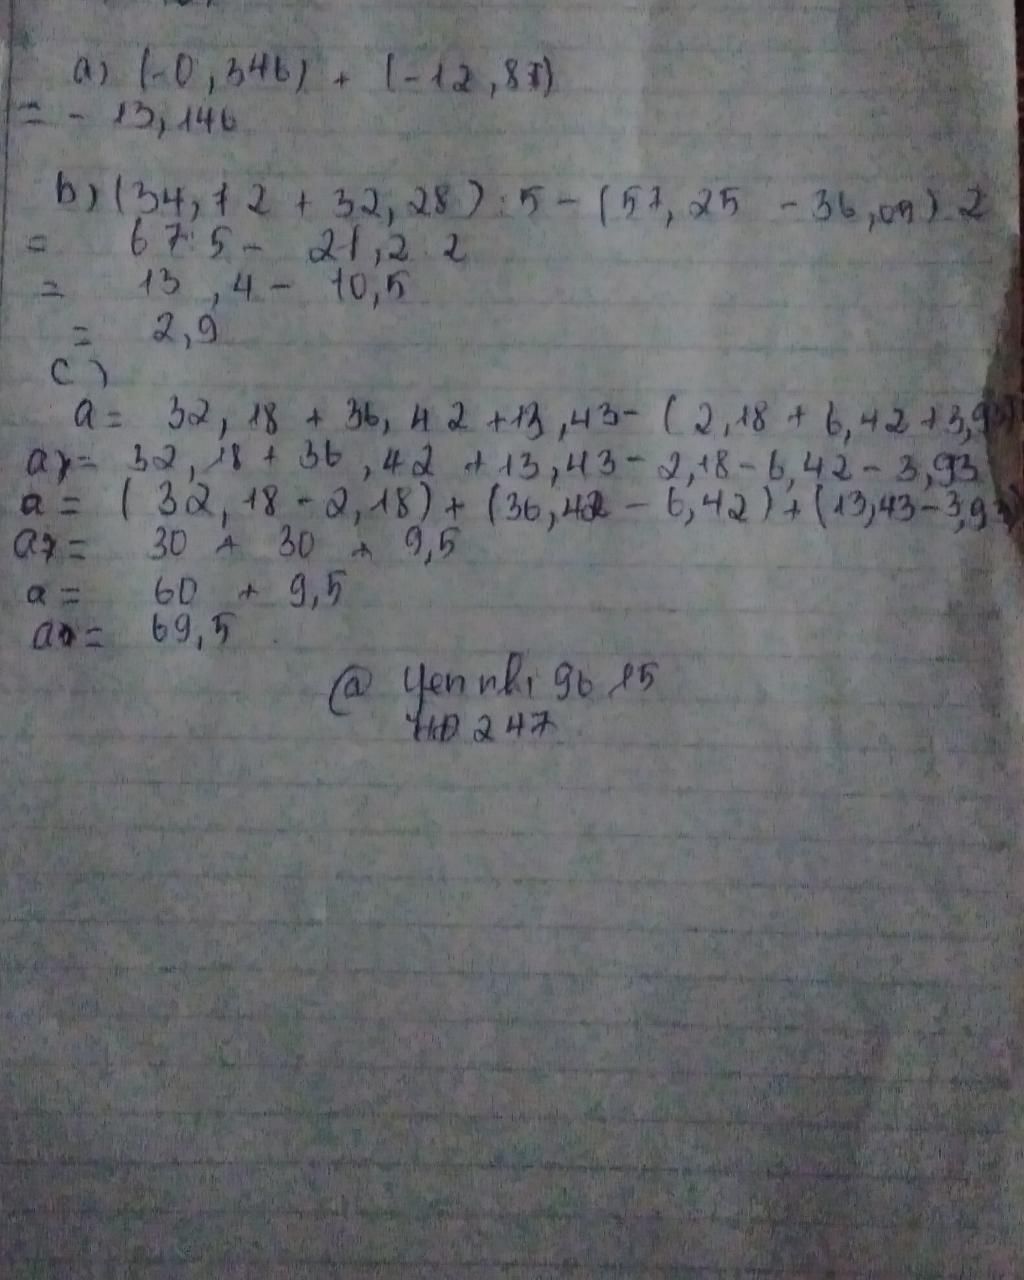 a) (-0,346) + (-12,87)
= - 13,146
b) (34,72 + 32,28) : 5 - (57,25 - 36,09) . 2
= 67:5 - 21,2 . 2
= 13,4 - 10,5
= 2,9
c)
a = 32,18 + 36,42 + 13,43 - (2,18 + 6,42 + 3,93)
a = 32,18 + 36,42 + 13,43 - 2,18 - 6,42 - 3,93
a = (32,18 - 2,18) + (36,42 - 6,42) + (13,43 - 3,93)
a = 30 + 30 + 9,5
a = 60 + 9,5
a = 69,5
@ Yennhi 96 15
HD 247